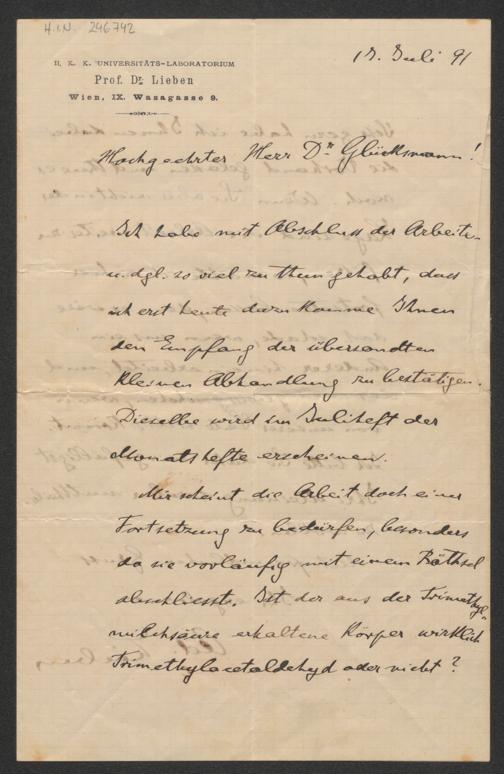 H.I.N. 246742
II. K. K. UNIVERSITÄTS-LABORATORIUM
Prof. Dr. Lieben
Wien, IX. Wasagasse 9.
Juli 91
Hochgeehrter Herr Dr. Glücksmann!
Ich habe mit Abschluss der Arbeiten
u. dgl. so viel zu thun gehabt, dass
ich erst heute dazu komme Ihnen
den Empfang der übersandten
kleinen Abhandlung zu bestätigen.
Dieselbe wird im Juliheft der
Monatshefte erscheinen.
Mir scheint die Arbeit doch einer
Fortsetzung zu bedürfen, besonders
da sie vorläufig mit einem Räthsel
abschliesst. Ist der aus der Trimethyl-
milchsäure erhaltene Körper wirklich
Trimethylacetaldehyd oder nicht?